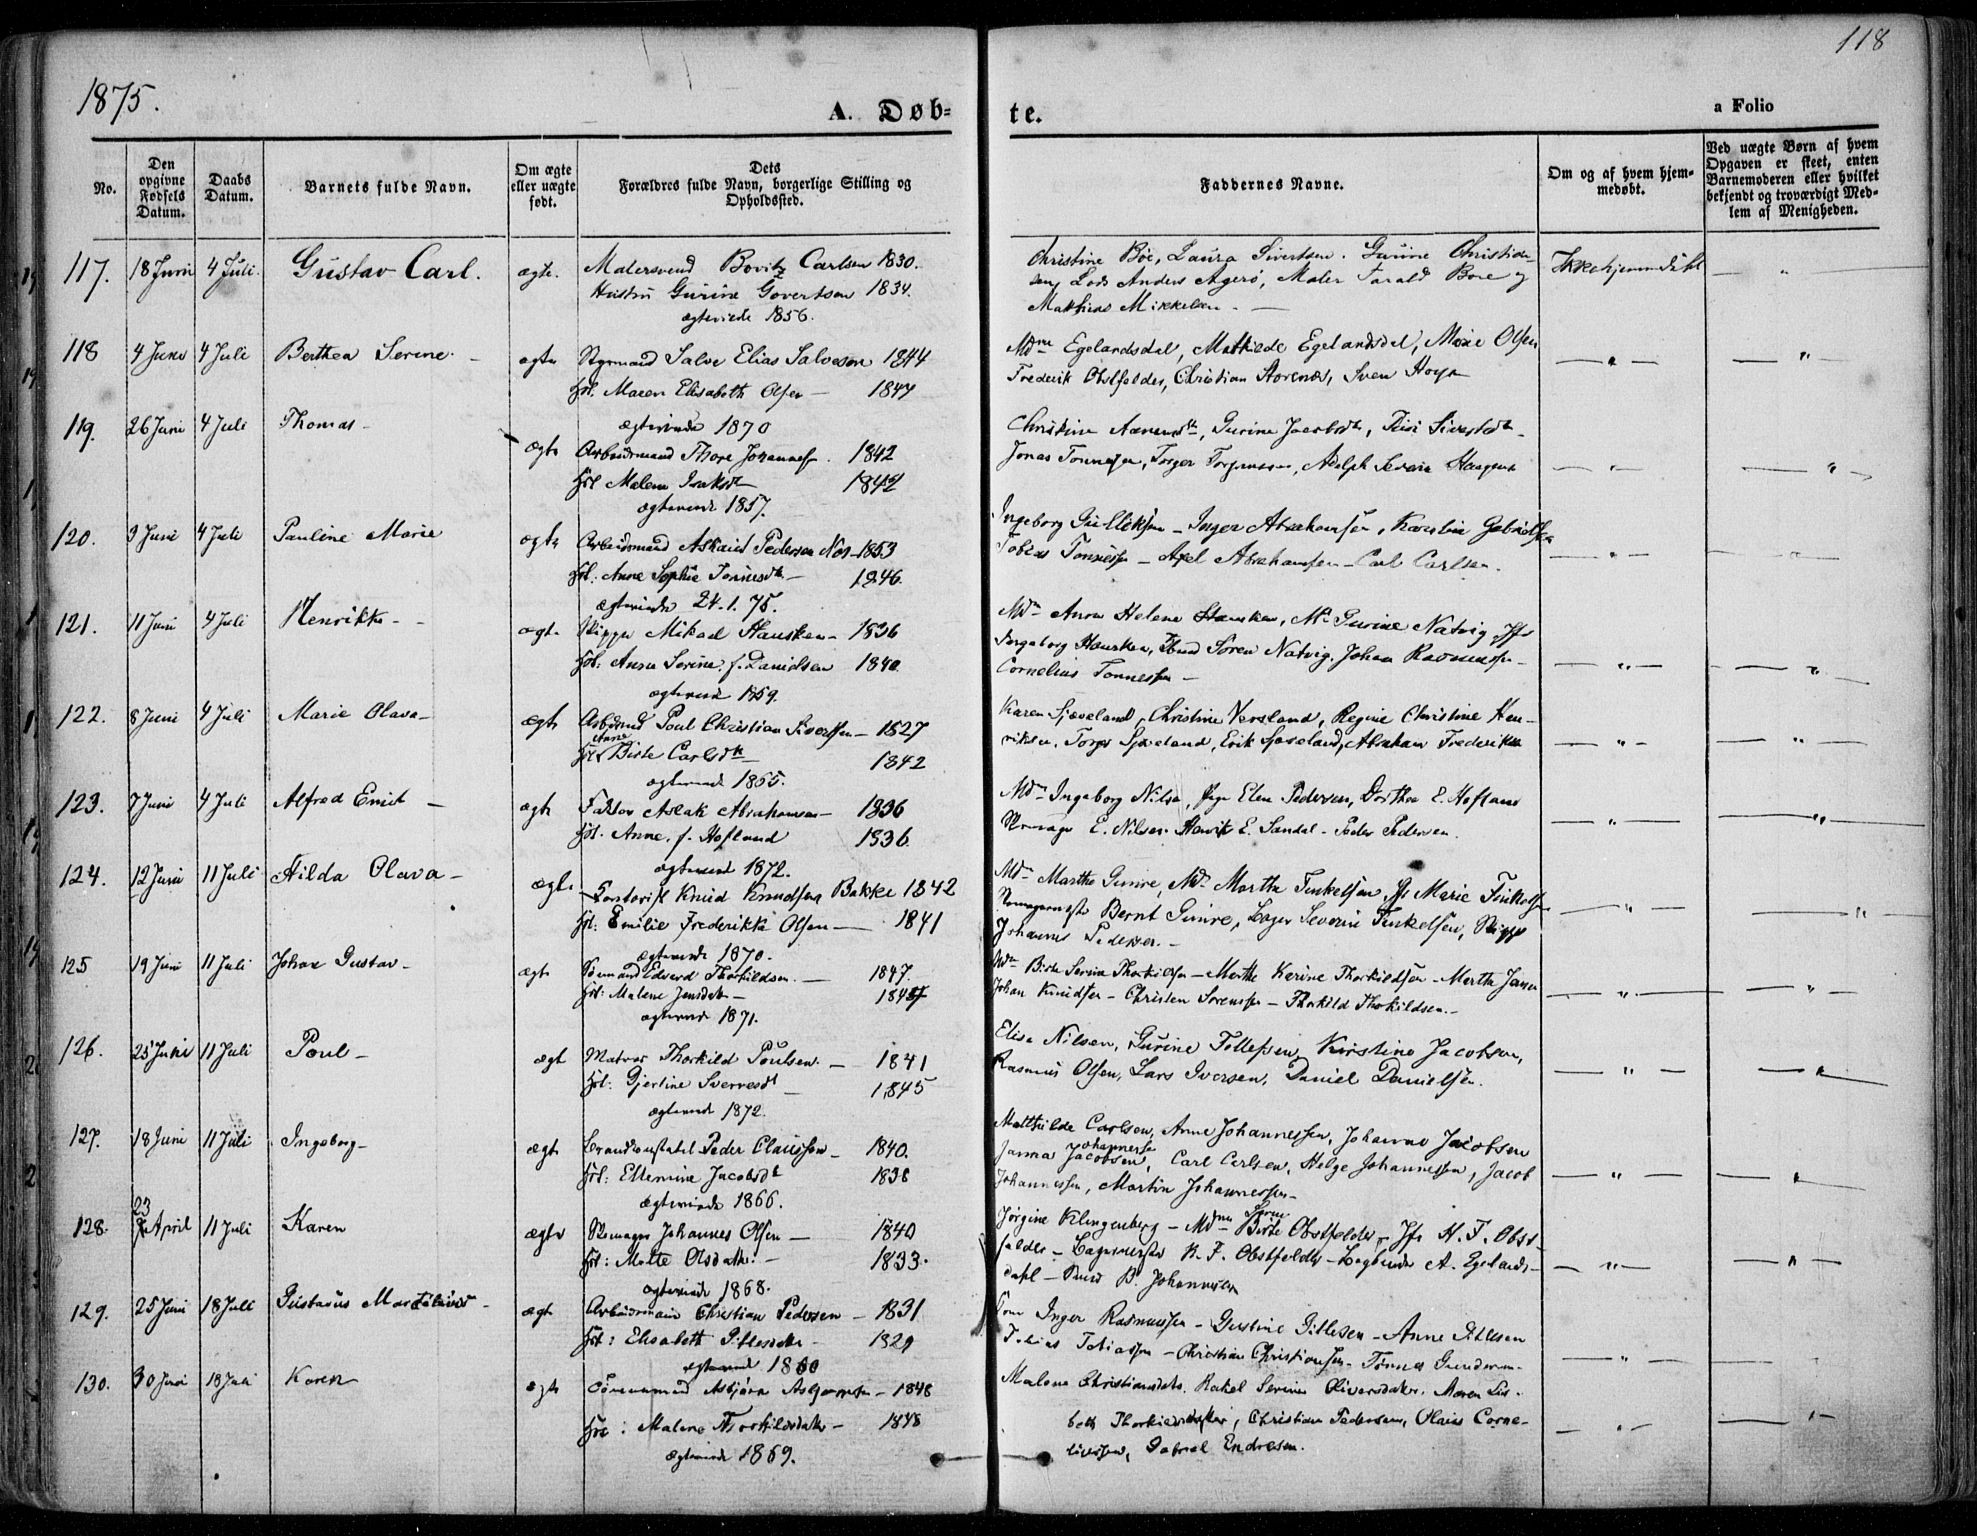 1875.
118
A. Døb-
te.
a Folio
No.
Den opgivne Fødsels Datum.
Daabs Datum.
Barnets fulde Navn.
Om ægte eller uægte født.
Dets Forældres fulde Navn, borgerlige Stilling og Opholdssted.
Faddernes Navne.
Om og af hvem hjem-
medøbt.
Ved uægte Børn af hvem
Opgaven er skeet, enten
Barnemoderen eller hvilket
bekjendt og troværdigt Med-
lem af Menigheden.
117. 18 Juni 4 Juli. Gustav Carl. ægte. Malersvend Bovitz Carlsen 1830.
Hustru Gurine Govertsen 1834.
ægteviede 1856.
Christine Böe, Laura Sivertsen. Gurine Christia-
Lods Anders Agerö, Maler Tarald Bore og
Mathias Mikkelsen. —
118 4 Juni 4 Juli Berthea Serine. ægte Styrmand Salve Elias Salvesen 1844
Hst. Maren Elisabeth Olsen — 1847
ægteviede 1870
Mdme Egelandsdal, Mathilde Egelandsdal, Marie Olsen
Frederik Obstfelder, Christian Storenes, Sven Höye
119. 26 Juni 4 Juli Thomas — ægte Arbeidsmand Thore Johannes. 1842
Hst Malene Isaksdt 1842
ægteviede 1857.
Jonas Tonnesen, Torger Torgersen, Adolph Severin Haagens
120. 3 Juni 4 Juli Pauline Marie ægte Arbeidsmand Pedersen 1853
Hst: Anne Sophie Tonnesdt — 1846.
ægteviede 24.1.75.
Ingeborg Gulliksen — Inger Abrahamsen, Karoline Gabrielsen
Tobias Tonnesen — Axel Abrahamsen — Carl Carlsen.
121. 11 Juni 4 Juli Henrikke — ægte Skipper Mikael Hausken — 1836
Hst: Anna Serine f. Danielsen 1840.
ægteviede 1859.
Mdm Anna Helene Hausken, Md Gurine Natvig, Jfr
Ingeborg Hausken, Sören Natvig, Johan Rasmussen —
Cornelius Tonnessen —
122. 8 Juni 4 Juli Marie Olava — ægte Arbdmd Poul Christian Sivertsen — 1827
Hst Anne Birte Carlsdt — 1842
ægteviede 1865.
Karen Sjæveland, Christine Versland, Regine Christine Hen-
riksen, Torger Sjæveland, Erik Sjæveland, Abraham Frederiksen
123. 7 Juni 4 Juli Alfred Emil — ægte Faktor Aslak Abrahamsen — 1836
Hst: Anne, f. Hofland 1836.
ægteviede 1872.
Mdm Ingeborg Nilsen, Elen Pedersen, Dorthea E. Hofland
E. Nilsen. Henrik E. Sandal — Peder Pedersen.
124. 12 Juni 11 Juli Hilda Olava — ægte Kontorist Knud Knudsen Bakke 1842
Hst: Emilie Frederikke Olsen — 1841
ægteviede 1870.
Mdm Marthe Gunre, Md. Marthe Finkelsen, Jfr Marie Finkelsen
Bernt Gunre, Bager Severin Finkelsen, Skipper
Johannes Pedersen. —
125 19 Juni 11 Juli Johan Gustav — ægte Sömand Edvard Thorkildsen. — 1847.
Hst: Malene Jensdatr — 1847
ægteviede 1871.
Mdm Birte Serine Thorkildsen — Marthe Karine Thorkildsen — Marthe Jansen
Johan Knudsen — Christen Sörensen — Thorkild Thorkildsen. —
126. 25 Juni 11 Juli Poul — ægte Matros Thorkild Poulsen. — 1841
Hst: Gjertine Sverresdt — 1845
ægteviede 1872.
Elisa Nilsen, Gurine Tollefsen, Kirstine Jacobsen,
Rasmus Olsen, Lars Iversen, Daniel Danielsen.
127. 18 Juni 11 Juli Ingeborg — ægte Brandconstabel Peder Claussen — 1840.
Hst: Ellemine Jacobsdt 1838
ægteviede 1866.
Matthilde Carlsen, Anne Johannessen, Johanne Jacobsen
Janna Jacobsen, Johannesen Carl Carlsen, Helge Johannessen, Jacob
Johannessen, Martin Johannessen —
128. 23 April 11 Juli Karen ægte Skomager Johannes Olsen — 1840
Hst: Malte Olsdatr. — 1833.
ægteviede 1868.
Jörgine Klingenberg — Mdm Birte Serine Obstfelder, Jfr H. F. Obst-
felder — Bagermester R. F. Obstfelder — Bogbinder A. Egelands-
dahl — B. Johannesen
129. 25 Juni 18 Juli Gustavus ægte Arbeidsmand Christian Pedersen — 1831
Hst: Elisabeth Gitlesdatr — 1829
ægteviede 1860
Inger Rasmussen — Gurstine Gitlesen — Anne Gitlesen
Tobias Tobiassen — Christian Christiansen — Tönnes Gundersen —
130. 30 Juni 18 Juli Karen ægte Tömmermand Asbjörn Asbjörnsen — 1848
Hst: Malene Thorkildsdatr — 1848
ægteviede 1869.
Malene Christiansdatr. Rakel Serine Oliversdatr. Maren Lis-
beth Thorkildsdatter, Christian Pedersen, Olaus Corne-
liussen, Gabriel Endresen.
Ikkehjemmedöbt